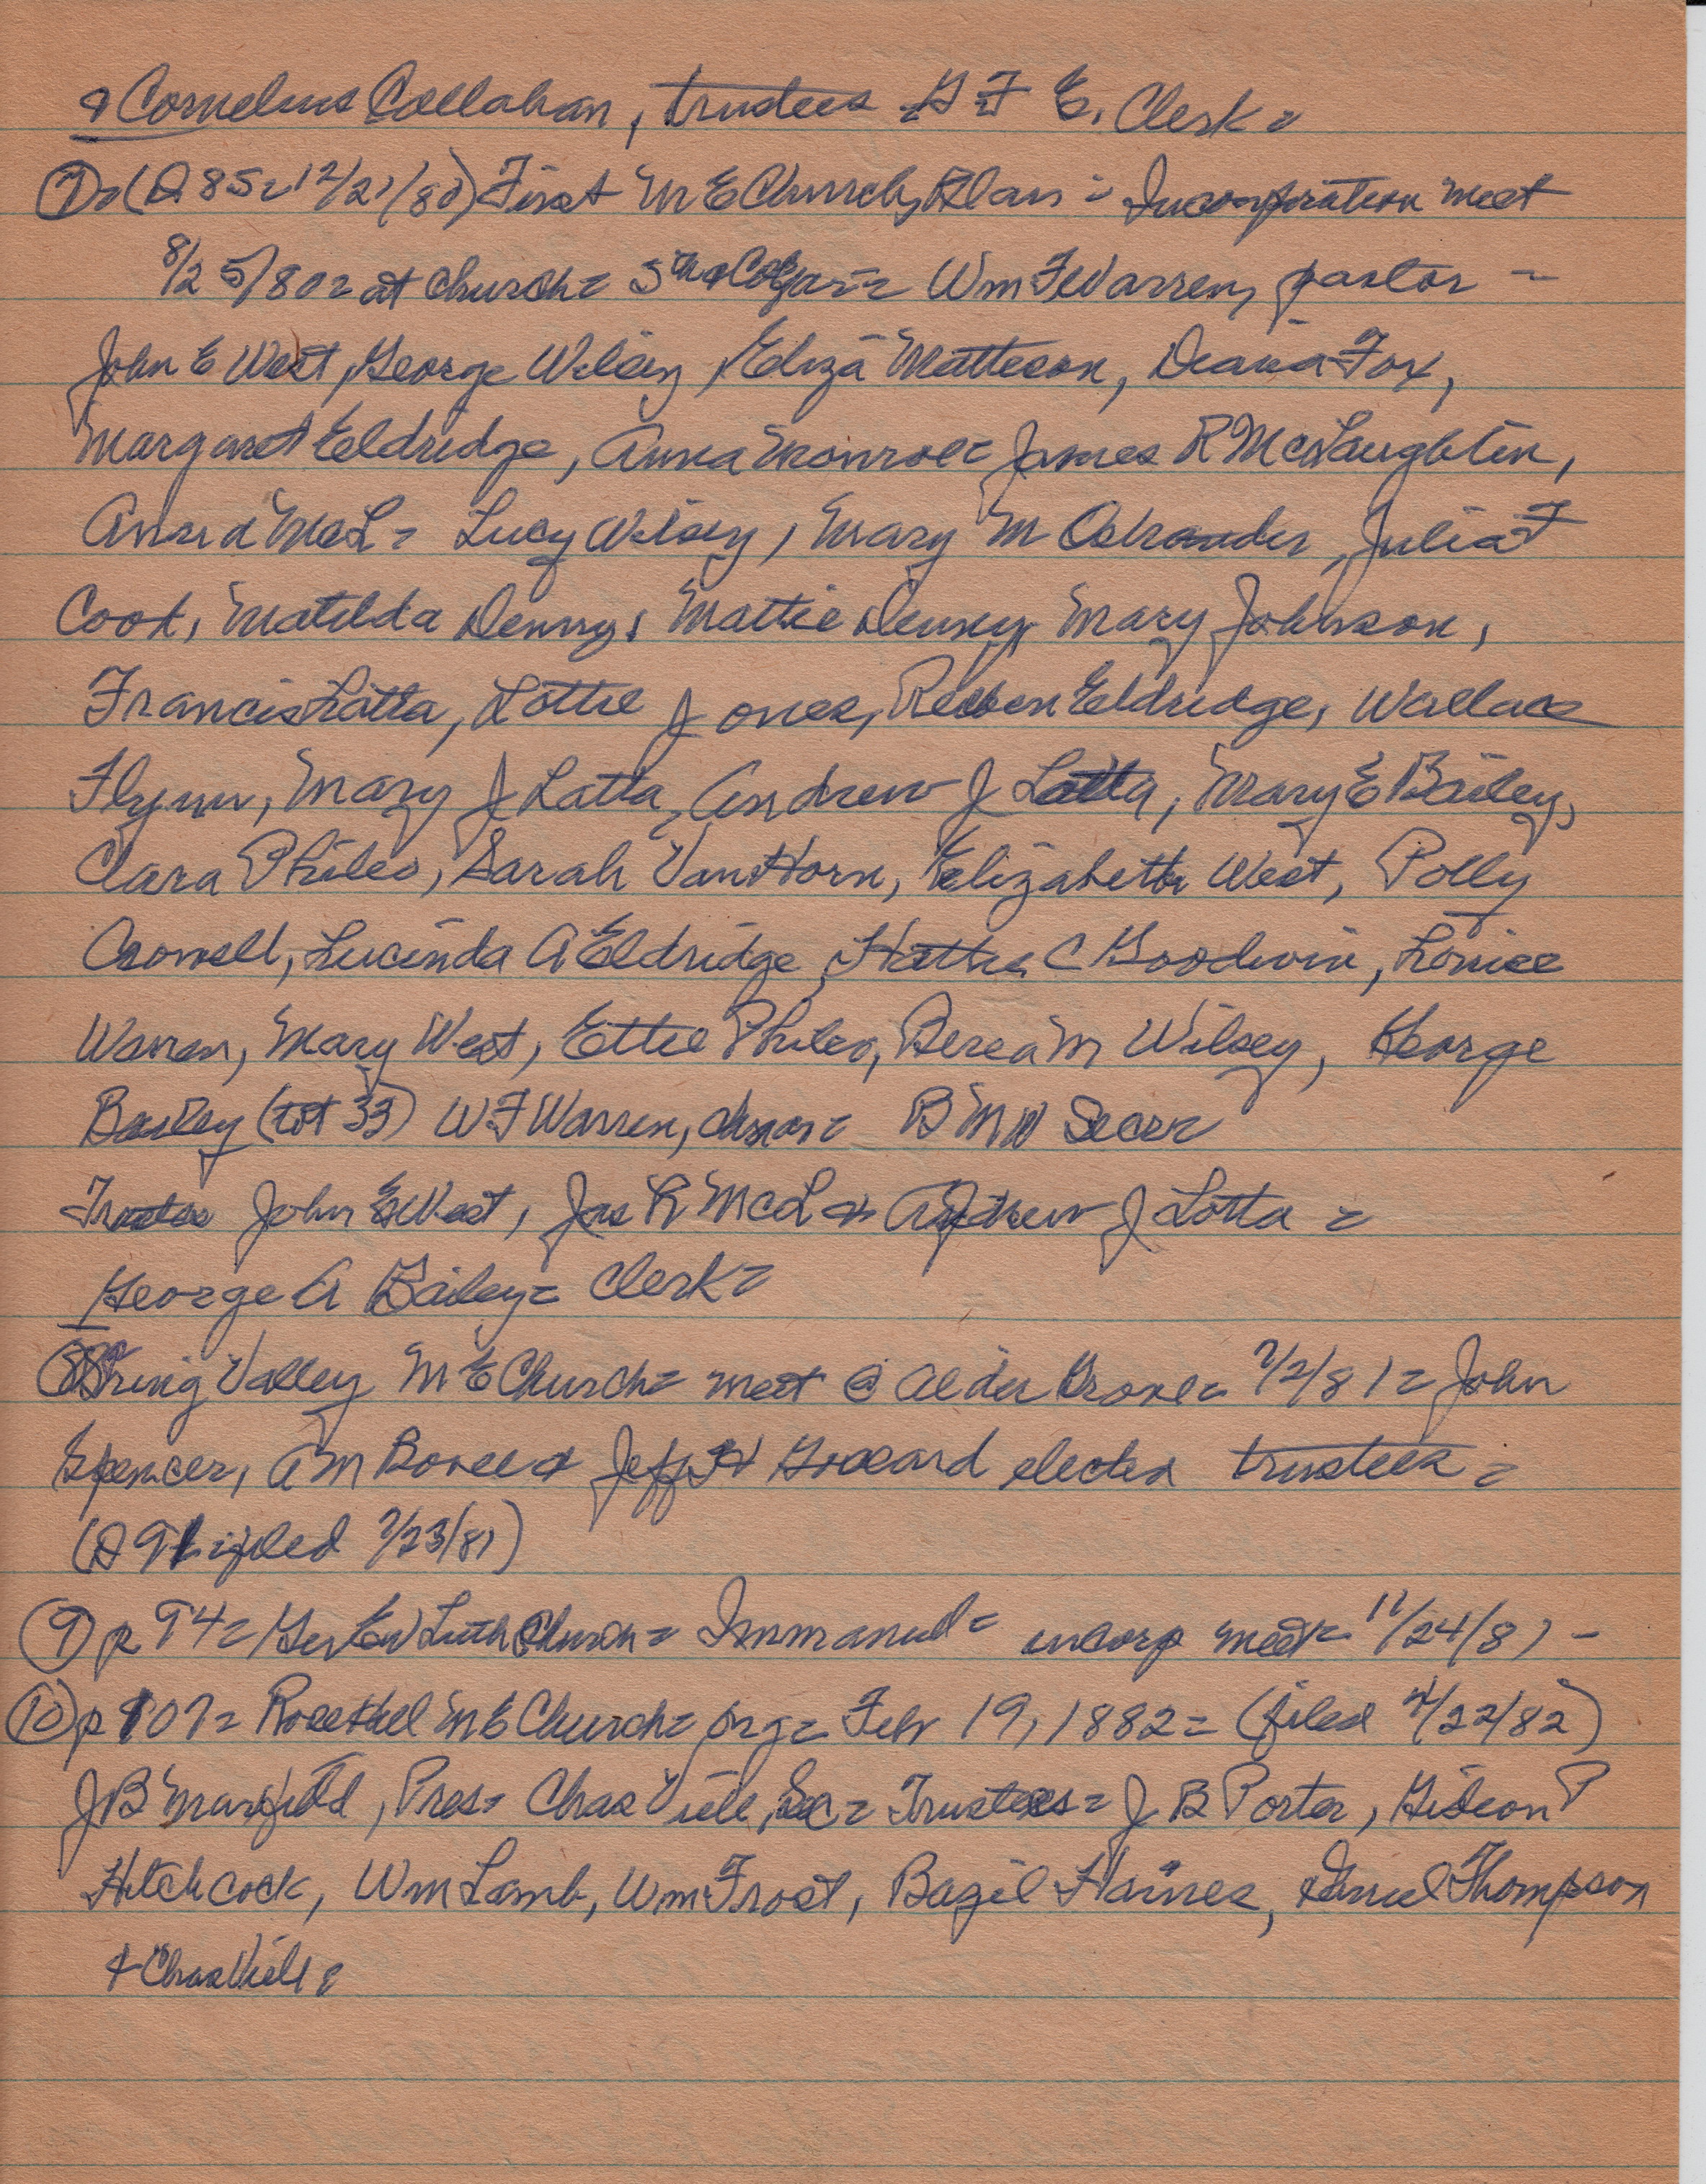 & Cornelius Callahan, trustees G F E. Clerk =
⑦ = (D 85 = 12/21/80) First M E Church, Blair = Incorporation meet
8/25/80 = at church = 5th & = Wm F Warren, pastor -
John E West, George Wilsey, Eliza Matteson, Diana Fox,
Margaret Eldridge, Anna Monroe = James R McLaughlin,
Anna McL = Lucy Wilsey, Mary M Ostrander, Julia F
Cook, Matilda Denny, Mattie Denny, Mary Johnson,
Francis Latta, Lottie Jones, Reuben Eldridge, Wallace
Flynn, Mary J Latta, Andrew J Latta, Mary E Bailey,
Clara Phileo, Sarah VanHorn, Elizabeth West, Polly
Crowell, Lucinda A Eldridge, Hattie C Goodwin, Louise
Warren, Mary West, Ettie Phileo, Berea M Wilsey, George
Bailey (tot 33) W F Warren, chman = B M W Secer
Trustes John E West, Jas R McL & Andrew J Lotta =
George A Bailey = Clerk =
⑧ Spring Valley M E Church = meet @ Alder Grove = 7/2/81 = John
Spencer, A M Bovee & Jeff H Goddard elected trustees =
(D 91 = filed 7/23/81)
⑨ p 94 = Ger Ev Luth Church = Immanuel = incorp meet = 11/24/81 -
⑩ p 107 = Rose Hill M E Church = org = Feb 19, 1882 = (filed 4/22/82)
J B Maxfield, Pres = Chas Viele, Sec = Trustees = J B Porter, Gideon P
Hitchcock, Wm Lamb, Wm Frost, Bazil Haines, Daniel Thompson
& Chas Viele =